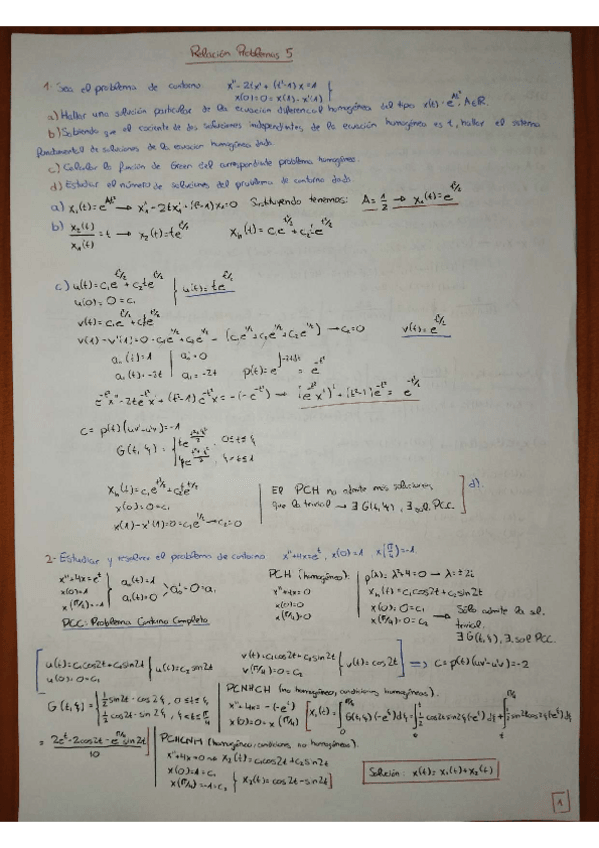 Relación Problemas 5
1- Sea el problema de contorno x'' - 2tx' + (t²-1)x = 1
x(0) = 0 = x(1) - x'(1)
a) Hallar una solución particular de la ecuación diferencial homogénea del tipo x(t) = e^{At²}, A∈R.
b) Sabiendo que el cociente de dos soluciones independientes de la ecuación homogénea es t, hallar el sistema
fundamental de soluciones de la ecuación homogénea dada.
c) Calcular la función de Green del correspondiente problema homogéneo.
d) Estudiar el número de soluciones del problema de contorno dado.
a) x₁(t) = e^{At²} → x₁'' - 2tx₁' + (t²-1)x₁ = 0 Sustituyendo tenemos: A = 1/2 → x₁(t) = e^{t²/2}
b) x₂(t)/x₁(t) = t → x₂(t) = te^{t²/2} x_h(t) = c₁e^{t²/2} + c₂te^{t²/2}
c) u(t) = c₁e^{t²/2} + c₂te^{t²/2}
u(0) = 0 = c₁ } u(t) = te^{t²/2}
v(t) = c₁e^{t²/2} + c₂te^{t²/2}
v(1) - v'(1) = 0 = c₁e^{1/2} + c₂e^{1/2} - (c₁e^{1/2} + c₂e^{1/2} + c₂e^{1/2}) → c₂ = 0 v(t) = e^{t²/2}
a₀(t) = 1 | a₀' = 0
a₁(t) = -2t | a₁ = -2t p(t) = e^{∫-2tdt} = e^{-t²}
e^{-t²}x'' - 2te^{-t²}x' + (t²-1)e^{-t²}x = -(-e^{-t²})
c = p(t)(uv' - u'v) = -1
G(t,ξ) = { te^{(t²+ξ²)/2}, 0≤t≤ξ
ξe^{(t²+ξ²)/2}, ξ≤t≤1
x_h(t) = c₁e^{t²/2} + c₂te^{t²/2}
x(0) = 0 = c₁
x(1) - x'(1) = 0 = c₁e^{1/2} → c₂ = 0
El PCH no admite más soluciones
que la trivial → ∃ G(t,ξ), ∃ sol PCC. d)
2- Estudiar y resolver el problema de contorno x'' + 4x = e^t, x(0) = 1 x(π/4) = -1.
x'' + 4x = e^t
x(0) = 1
x(π/4) = -1 } a₀(t) = 1
a₁(t) = 0 > a₀' = 0 = a₁
PCC: Problema Contorno Completo
PCH (homogéneo):
x'' + 4x = 0
x(0) = 0
x(π/4) = 0
p(λ) = λ² + 4 = 0 → λ = ±2i
x_h(t) = c₁cos2t + c₂sin2t
x(0) = 0 = c₁
x(π/4) = 0 = c₂ → Sólo admite la sol.
trivial.
∃ G(t,ξ), ∃ sol PCC.
u(t) = c₁cos2t + c₂sin2t
u(0) = 0 = c₁ } u(t) = c₂sin2t
v(t) = c₁cos2t + c₂sin2t
v(π/4) = 0 = c₂ } v(t) = cos2t ⟹ c = p(t)(uv' - u'v) = -2
G(t,ξ) = { 1/2 sin2t · cos2ξ, 0≤t≤ξ
1/2 cos2t · sin2ξ, ξ≤t≤π/4
PCNHCH (no homogéneo, condiciones homogéneas).
x'' + 4x = -(-e^t)
x(0) = 0 = x(π/4)
x₁(t) = ∫₀^{π/4} G(t,ξ)(-e^ξ)dξ = ∫₀^t 1/2 cos2t sin2ξ(-e^ξ)dξ + ∫_t^{π/4} 1/2 sin2t cos2ξ(-e^ξ)dξ
= (2e^t - 2cos2t - e^{π/4}sin2t)/10
PCHCNH (homogéneo, condiciones no homogéneas).
x'' + 4x = 0 → x₂(t) = c₁cos2t + c₂sin2t
x(0) = 1 = c₁
x(π/4) = -1 = c₂ } x₂(t) = cos2t - sin2t
Solución: x(t) = x₁(t) + x₂(t)
1